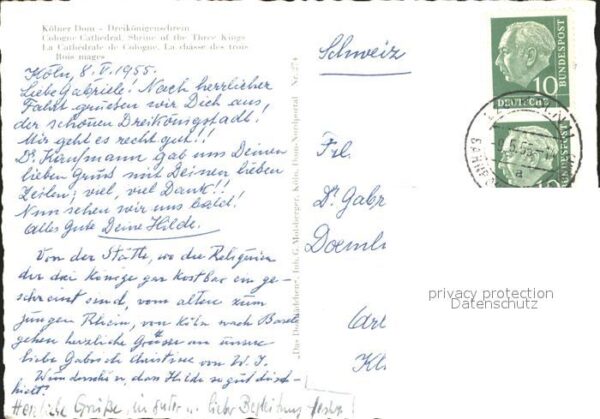 Kölner Dom - Dreikönigenschrein
Cologne Cathedral, Shrine of the Three Kings
La Cathédrale de Cologne, La chasse des trois
Rois mages
Köln, 8. V. 1955.
Liebe Gabriele! Nach herrlicher
Fahrt grüßen wir Dich aus
der schönen Dreikönigsstadt!
Mir geht es recht gut!!
Dr. Kaufmann gab uns Deinen
lieben Gruß mit Deinen lieben
Zeilen; viel, viel Dank!!
Nun sehen wir uns bald!
Alles Gute Deine Hilde.
Von der Stätte, wo die Reliquien
der drei Könige gar kostbar ein ge-
schreint sind, vom alten zum
jungen Rhein, von Köln nach Basel
gehen herzliche Grüsse an unsre
liebe Gabriele
von W. J.
dass Hilde so gut
Herzliche Grüße, in guter ... lieber Begleitung
"Das Domlädchen", Inh. G. Molsberger, Köln, Dom-Nordportal
Schweiz
Frl.
Dr Gabr
Doeml
10
DEUTSCHE
BUNDESPOST
10
BUNDESPOST
a
privacy protection
Datenschutz